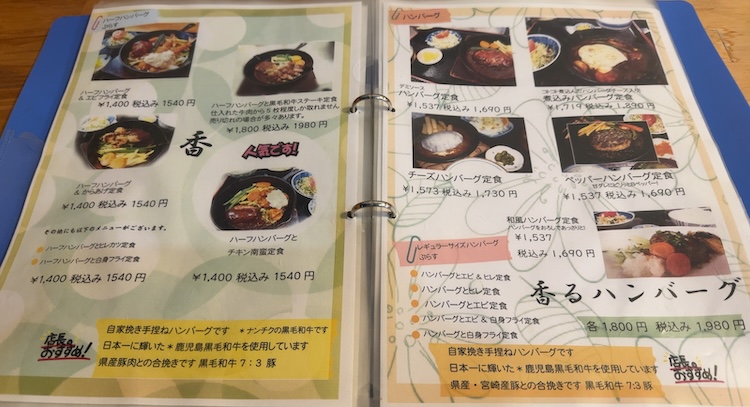 ハーフハンバーグ
ぷらす
ハーフハンバーグ
＆エビフライ定食
¥1,400 税込み 1540 円
ハーフハンバーグと黒毛和牛ステーキ定食
仕入れた牛肉から5枚程度しか取れません
売り切れの場合が多々あります。
¥1,800 税込み 1980 円
香
人気です!
ハーフハンバーグ
＆からあげ定食
¥1,400 税込み 1540 円
その他にも以下のメニューがございます。
ハーフハンバーグとヒレカツ定食
ハーフハンバーグと白身フライ定食
¥1,400 税込み 1540 円
ハーフハンバーグと
チキン南蛮定食
¥1,400 税込み 1540 円
自家挽き手捏ねハンバーグです ＊ナンチクの黒毛和牛です
日本一に輝いた＊鹿児島黒毛和牛を使用しています
県産豚肉との合挽きです 黒毛和牛 7：3 豚
店長のおすすめ!
ハンバーグ
デミソース
ハンバーグ定食
¥1,537 税込み 1,690 円
煮込みハンバーグ定食
¥1,719 税込み 1,890 円
チーズハンバーグ定食
¥1,573 税込み 1,730 円
ペッパーハンバーグ定食
¥1,537 税込み 1,690 円
和風ハンバーグ定食
ハンバーグをおろしであっさりと!
¥1,537
税込み 1,690 円
レギュラーサイズハンバーグ
ぷらす
ハンバーグとエビ＆ヒレ定食
ハンバーグとヒレ定食
ハンバーグとエビ定食
ハンバーグとエビ＆白身フライ定食
ハンバーグと白身フライ定食
香るハンバーグ
各 1,800 円 税込み 1,980 円
自家挽き手捏ねハンバーグです
日本一に輝いた＊鹿児島黒毛和牛を使用しています
県産・宮崎産豚との合挽きです 黒毛和牛 7:3 豚
店長のおすすめ!